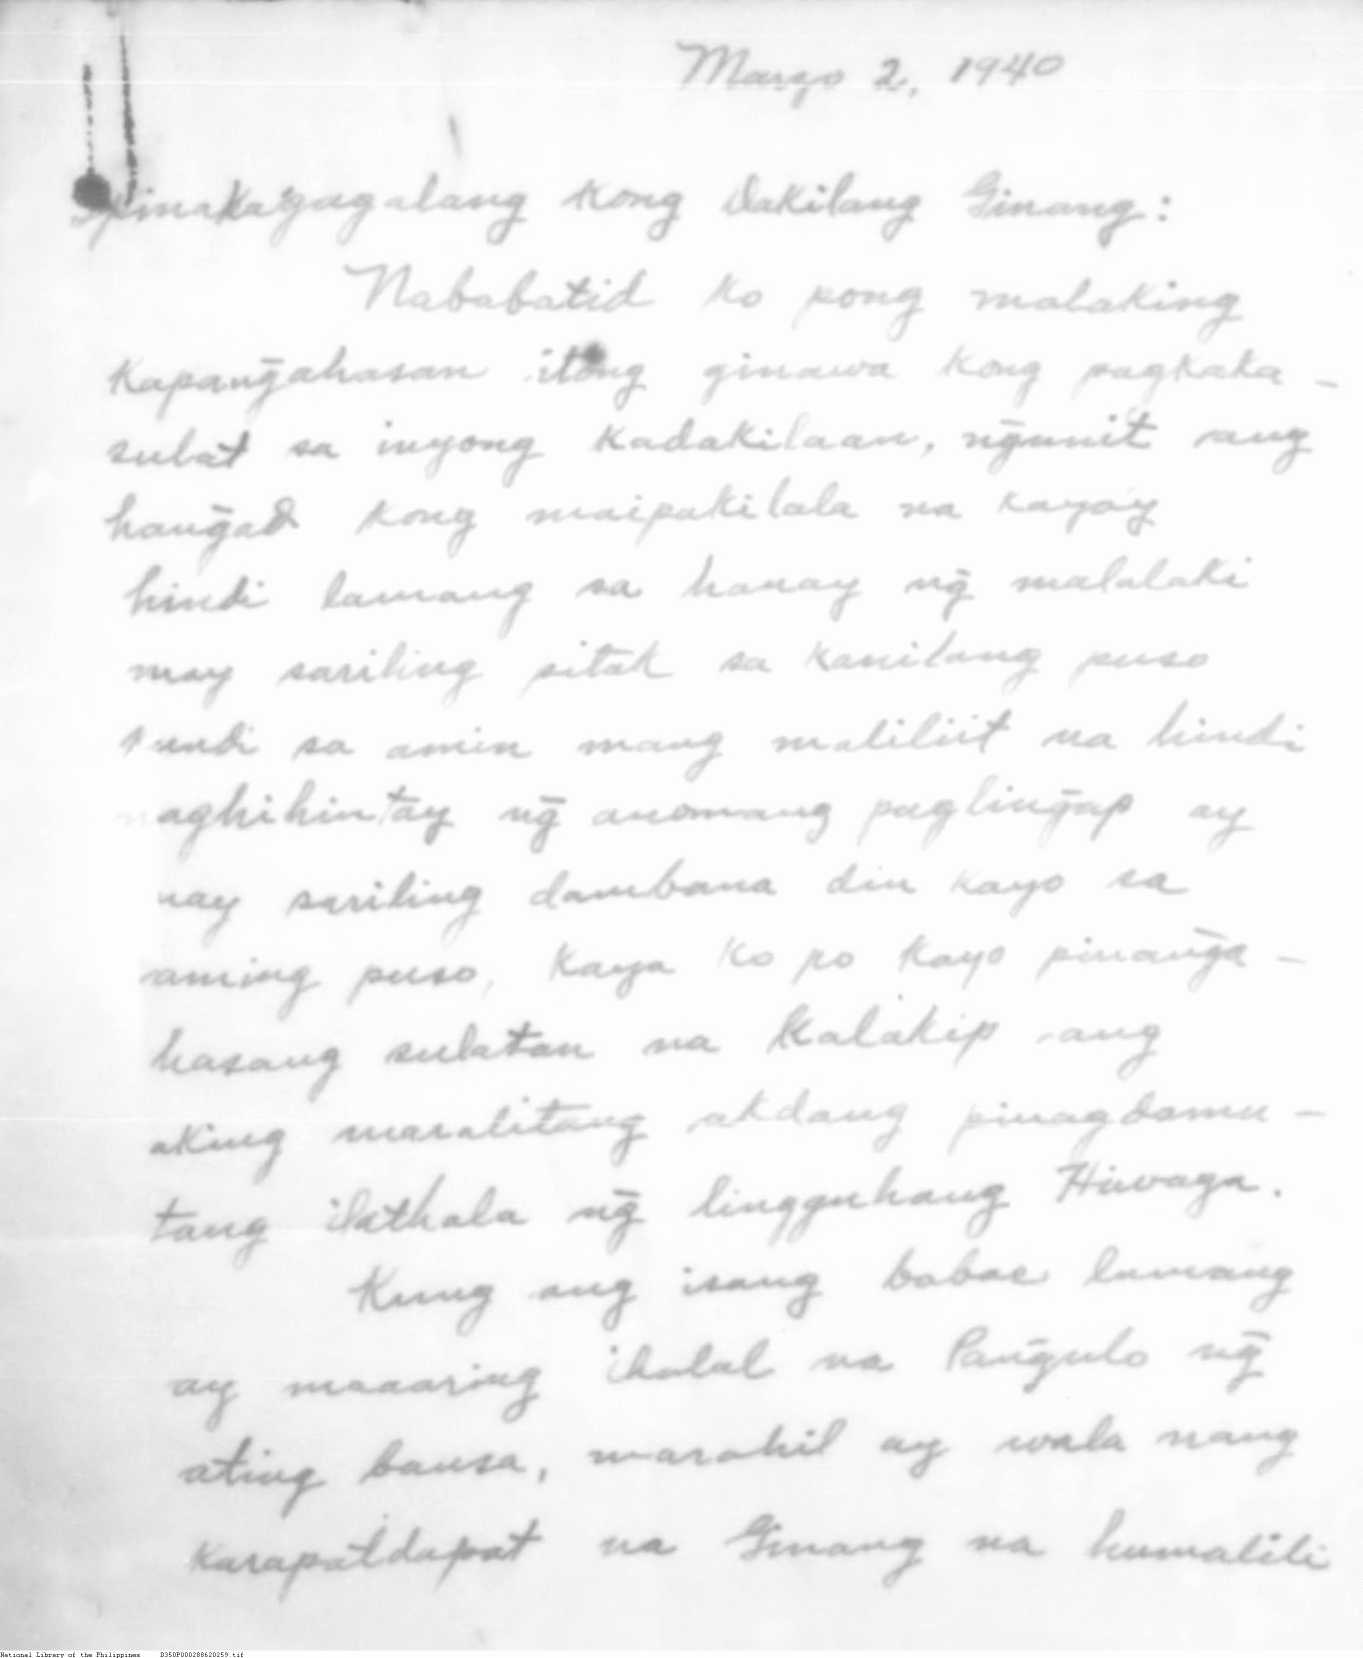 Marzo 2, 1940
Pinakagagalang kong Dakilang Ginang:
Nababatid ko pong malaking
kapang̃ahasan itong ginawa kong pagkaka-
sulat sa inyong kadakilaan, ng̃unit ang
hang̃ad kong maipakilala na kayo'y
hindi lamang sa hanay ng̃ malalaki
may sariling pitak sa kanilang puso
kundi sa amin mang maliliit na hindi
naghihintay ng̃ anomang pagling̃ap ay
may sariling dambana din kayo sa
aming puso, kaya ko po kayo pinang̃a-
hasang sulatan na kalakip ang
aking maralitang akdang pinagdamu-
tang ilathala ng̃ lingguhang Hiwaga.
Kung ang isang babae lamang
ay maaaring ihalal na Pang̃ulo ng̃
ating bansa, marahil ay wala nang
karapatdapat na Ginang na humalili
National Library of the Philippines D350P000288620259.tif